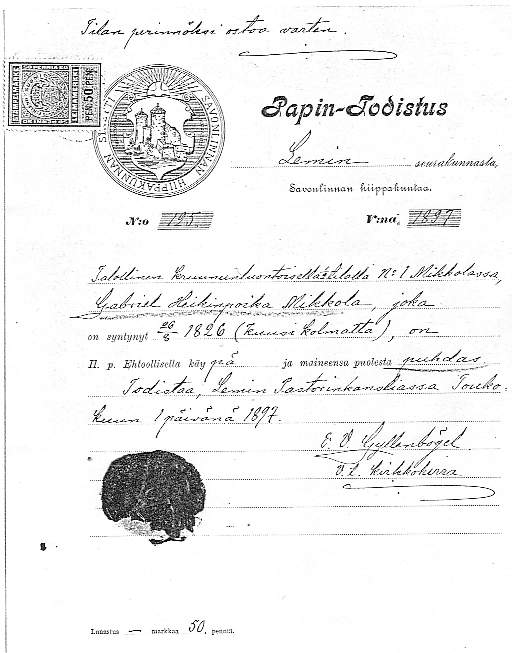 Tilan perinnöksi ostoa varten.
PEN. 50 PEN.
SAVONLINNAN HIIPPAKUNNAN
Papin-Todistus
Lemin seurakunnasta,
Savonlinnan hiippakuntaa.
N:o 125 V:na 1897
Talollinen kruununluontoisella tilalla N:o 1 Mikkolassa,
Gabriel Heikinpoika Mikkola, joka
on syntynyt 26/8 1826 (kuusi kolmatta), on
H. p. Ehtoollisella käypä ja maineensa puolesta puhdas
Todistaa, Lemin Pastorinkansliassa Touko-
kuun 1 päivänä 1897.
E. V. Gyllenbögel
V. t. kirkkoherra
Lunastus — markkaa 50. penniä.